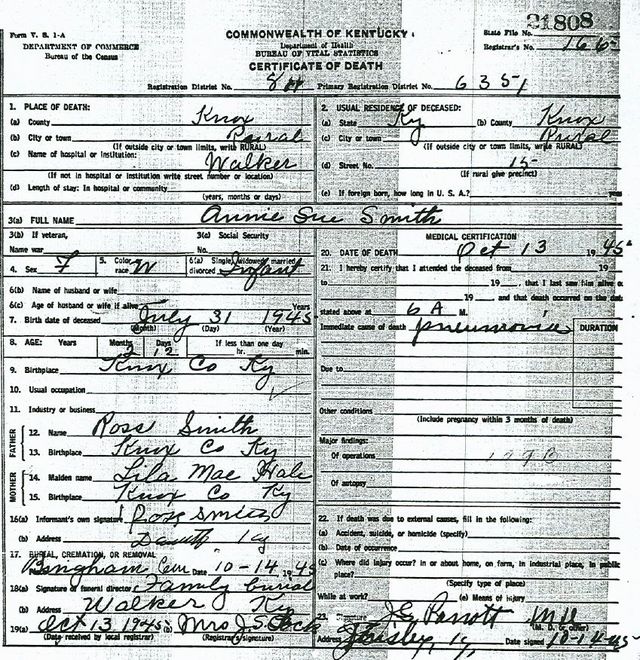 Form V. S. 1-A
DEPARTMENT OF COMMERCE
Bureau of the Census
COMMONWEALTH OF KENTUCKY
Department of Health
BUREAU OF VITAL STATISTICS
CERTIFICATE OF DEATH
21808
State File No.
Registrar's No. 166
Registration District No. Primary Registration District No. 6351
1. PLACE OF DEATH:
(a) County Knox
(b) City or town Rural
(If outside city or town limits, write RURAL)
(c) Name of hospital or institution: Walker
(If not in hospital or institution write street number or location)
(d) Length of stay: In hospital or community
(years, months or days)
2. USUAL RESIDENCE OF DECEASED:
(a) State Ky (b) County Knox
(c) City or town Rural
(If outside city or town limits, write RURAL)
(d) Street No. 15
(If rural give precinct)
(e) If foreign born, how long in U. S. A.? years
3(a) FULL NAME Annie Sue Smith
3(b) If veteran,
Name war
3(c) Social Security
No.
4. Sex F
5. Color
race W
6(a) Single, widowed, married
divorced Infant
6(b) Name of husband or wife
6(c) Age of husband or wife if alive Years
7. Birth date of deceased July 31 1945
(Month) (Day) (Year)
8. AGE: Years Months 2 Days 12 If less than one day
hr. min.
9. Birthplace Knox Co Ky
10. Usual occupation
11. Industry or business
FATHER
12. Name Ross Smith
13. Birthplace Knox Co Ky
MOTHER
14. Maiden name Lila Mae Hale
15. Birthplace Knox Co Ky
16(a) Informant's own signature Ross Smith
(b) Address Ky
17. BURIAL, CREMATION, OR REMOVAL
Place Bingham Cem Date 10-14 1945
18(a) Signature of funeral director Family burial
(b) Address Walker Ky
19(a) Oct 13 1945 (b) Mrs J. S.
(Date received by local registrar) (Registrar's signature)
MEDICAL CERTIFICATION
20. DATE OF DEATH Oct 13 1945
21. I hereby certify that I attended the deceased from 19
to 19 , that I last saw him alive on
19 , and that death occurred on the date
stated above at 6 A M.
Immediate cause of death pneumonia
DURATION
Due to
Other conditions
(Include pregnancy within 3 months of death)
Major findings:
Of operations
Of autopsy
22. If death was due to external causes, fill in the following:
(a) Accident, suicide, or homicide (specify)
(b) Date of occurrence
(c) Where did injury occur? in or about home, on farm, in industrial place, in public
place?
(Specify type of place)
While at work? (e) Means of Injury
23. Signature J E Parrott M D
(M. D. or other)
Address Ky, Date signed 10-14-45